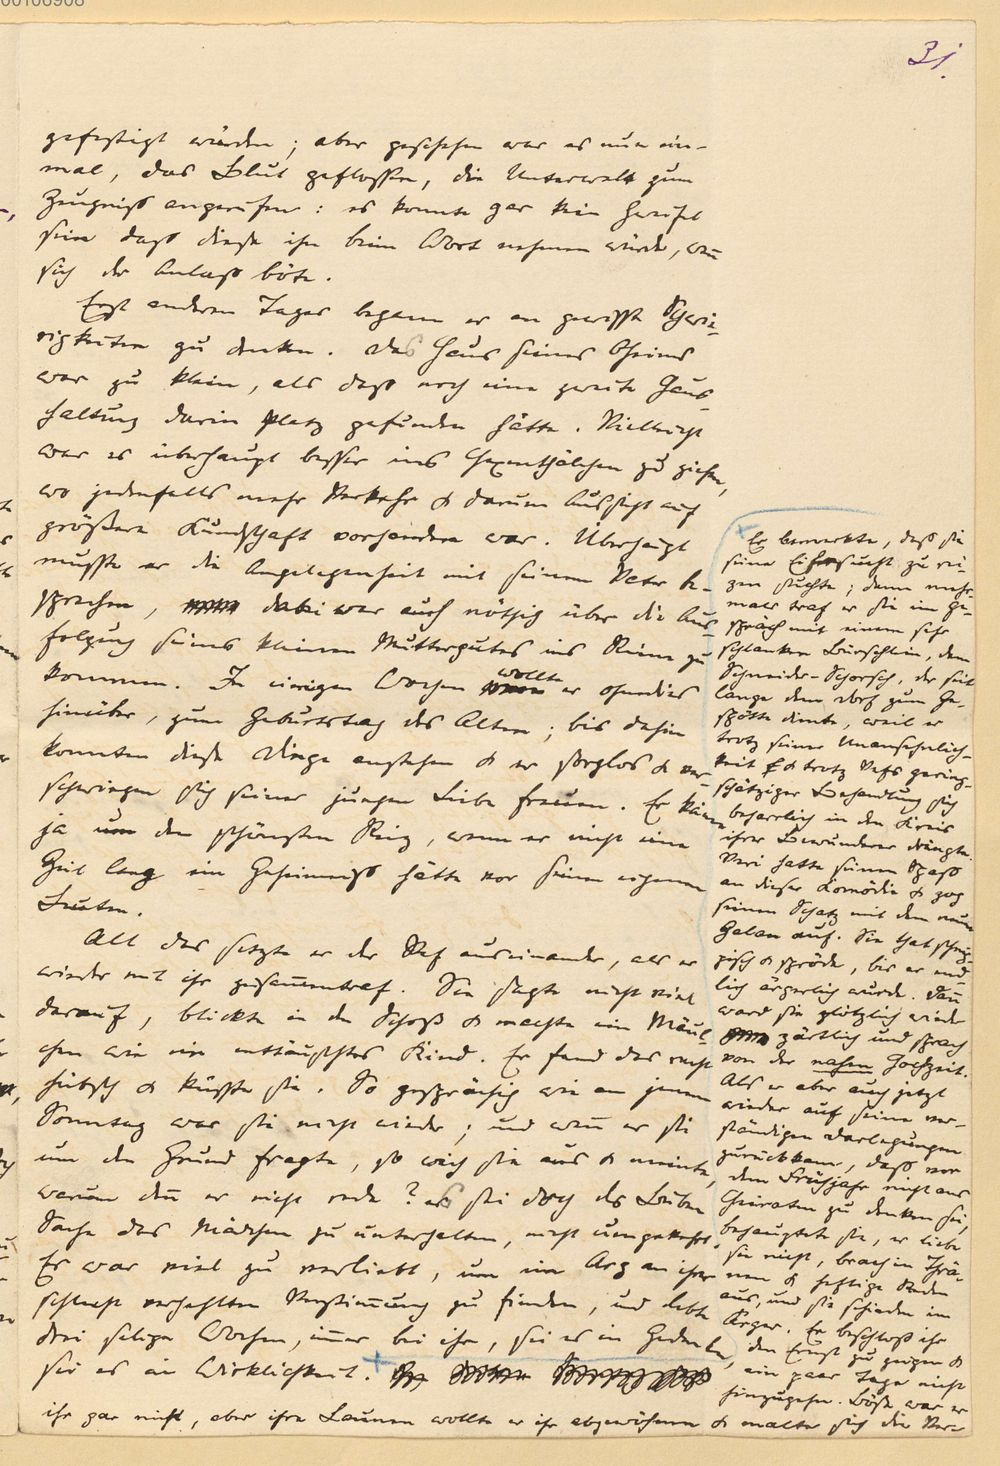 31.
gefestigt würden; aber geschehen war es nun ein-
mal, das Blut geflossen, die Unterwelt zum
Zeugniß angerufen: es konnte gar kein Zweifel
sein daß diese ihn beim Wort nehmen würde, wen̄
sich der Anlaß böte.
Erst anderen Tages begann er an gewisse Schwie-
rigkeiten zu denken. Das Haus seines Oheims
war zu klein, als daß noch eine zweite Haus-
haltung darin Platz gefunden hätte. Vielleicht
war es überhaupt besser ins Hexenthälchen zu ziehen,
wo jedenfalls mehr Verkehr & darum Aussicht auf
größere Kundschaft vorhanden war. Überhaupt
mußte er die Angelegenheit mit seinem Vater be-
sprechen, dabei war auch nöthig über die Aus-
folgung seines kleinen Muttergutes ins Reine zu
kommen. In einigen Wochen wollte er ohnedies
hinüber, zum Geburtstag des Alten; bis dahin
konnten diese Dinge anstehen & er sorglos & ver-
schwiegen sich seiner jungen Liebe freuen. Er käme
ja um den schönsten Reiz, wenn er nicht eine
Zeit lang ein Geheimniß hätte vor seinen eigenen
Leuten.
All das setzte er der Vef auseinander, als er
wieder mit ihr zusam̄entraf. Sie sagte nicht viel
darauf, blickte in den Schoß & machte ein Mäul-
chen wie ein enttäuschtes Kind. Er fand das recht
hübsch & küßte sie. So gesprächig wie an jenem
Sonntag war sie nicht wieder; und wen̄ er sie
um den Grund fragte, so wich sie aus & meinte,
warum den̄ er nicht rede? es sei doch des Buben
Sache das Mädchen zu unterhalten, nicht umgekehrt.
Er war viel zu verliebt, um ein Arg an ihrer
schlecht verhehlten Verstim̄ung zu finden, und lebte
drei selige Wochen, im̄er bei ihr, sei es in Gedanken,
sei es in Wirklichkeit.
Er bemerkte, daß sie
seine Eifersucht zu rei-
zen suchte; denn mehr-
mals traf er sie im Ge-
spräch mit einem sehr
schlanken Bürschlein, dem
Schneider-Schorsch, der seit
lange dem Dorf zum Ge-
spötte diente, weil er
trotz seiner Unansehnlich-
keit & trotz Vefs gering-
schätziger Behandlung sich
beharrlich in den Kreis
ihrer Bewunderer drängte.
Veri hatte seinen Spaß
an dieser Komödie & zog
seinen Schatz mit dem neuen
Galan auf. Sie that schnip-
pisch & spröde, bis er end-
lich ärgerlich wurde. Dan̄
ward sie plötzlich wieder
zärtlich und sprach
von der nahen Hochzeit.
Als er aber auch jetzt
wieder auf seine ver-
ständigen Darlegungen
zurückkam, daß vor
dem Frühjahr nicht ans
Heiraten zu denken sei,
behauptete sie, er liebe
sie nicht, brach in Thrä-
nen & heftige Reden
aus, und sie schieden im
Aerger. Er beschloß ihr
den Ernst zu zeigen &
ein paar Tage nicht
hinzugehn. Böse war er
ihr gar nicht, aber ihre Launen wollte er ihr abgewöhnen & malte sich die Ver-